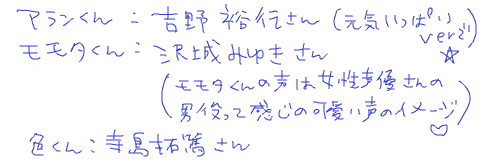 アランくん：吉野裕行さん（元気いっぱいverで☆
モモタくん：沢城みゆきさん
（モモタくんの声は女性声優さんの
男役って感じの可愛い声のイメージ♡）
色くん：寺島拓篤さん